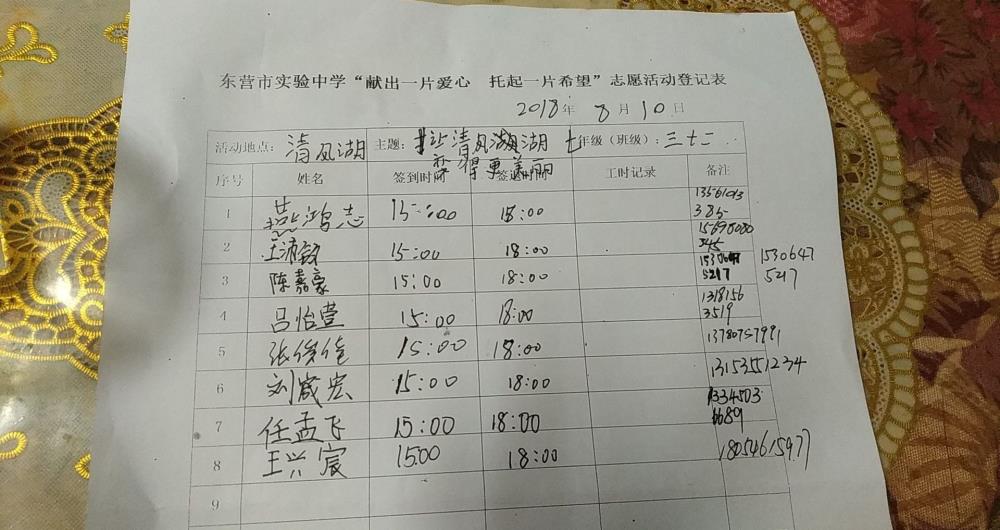 东营市实验中学“献出一片爱心 托起一片希望”志愿活动登记表
2018年 8月10日
活动地点：清风湖 主题：让清风湖湖 七年级（班级）：三十二
变得更美丽
序号 姓名 签到时间 签退时间 工时记录 备注
1 鸿志 15:00 18:00 13561013
385
2 王 15:00 18:00
3 陈嘉豪 15:00 18:00 5217 1530647
5217
4 吕怡萱 15:00 18:00 1318156
3519
5 张俊 15:00 18:00 13780757991
6 刘宬宏 15:00 18:00 13153551234
7 任孟飞 15:00 18:00 1334503
6689
8 王兴宸 15:00 18:00 18054615977
9